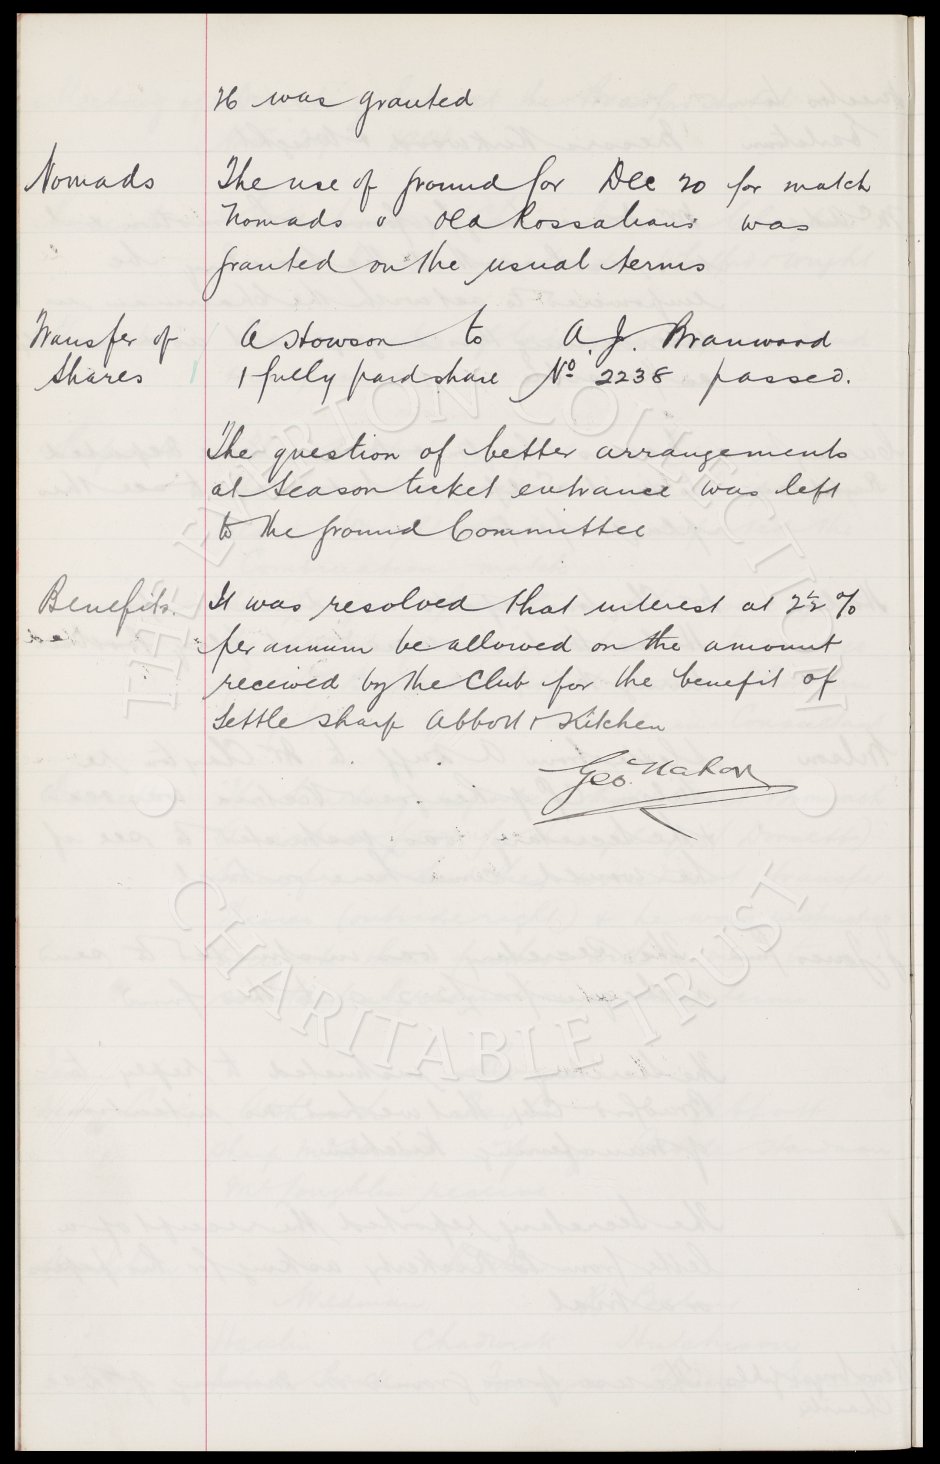 26 was granted
Nomads The use of ground for Dec 20 for match
Nomads v Old Rossalians was
granted on the usual terms
Transfer of Shares A Howson to A. J. Branwood
1 fully paid share No 2238 passed.
The question of better arrangements
at Season ticket entrance was left
to the Ground Committee
Benefits. It was resolved that interest at 2½ %
per annum be allowed on the amount
received by the Club for the benefit of
Settle Sharp Abbott & Kitchen
Geo Mahon
THE EVERTON COLLECTION
CHARITABLE TRUST